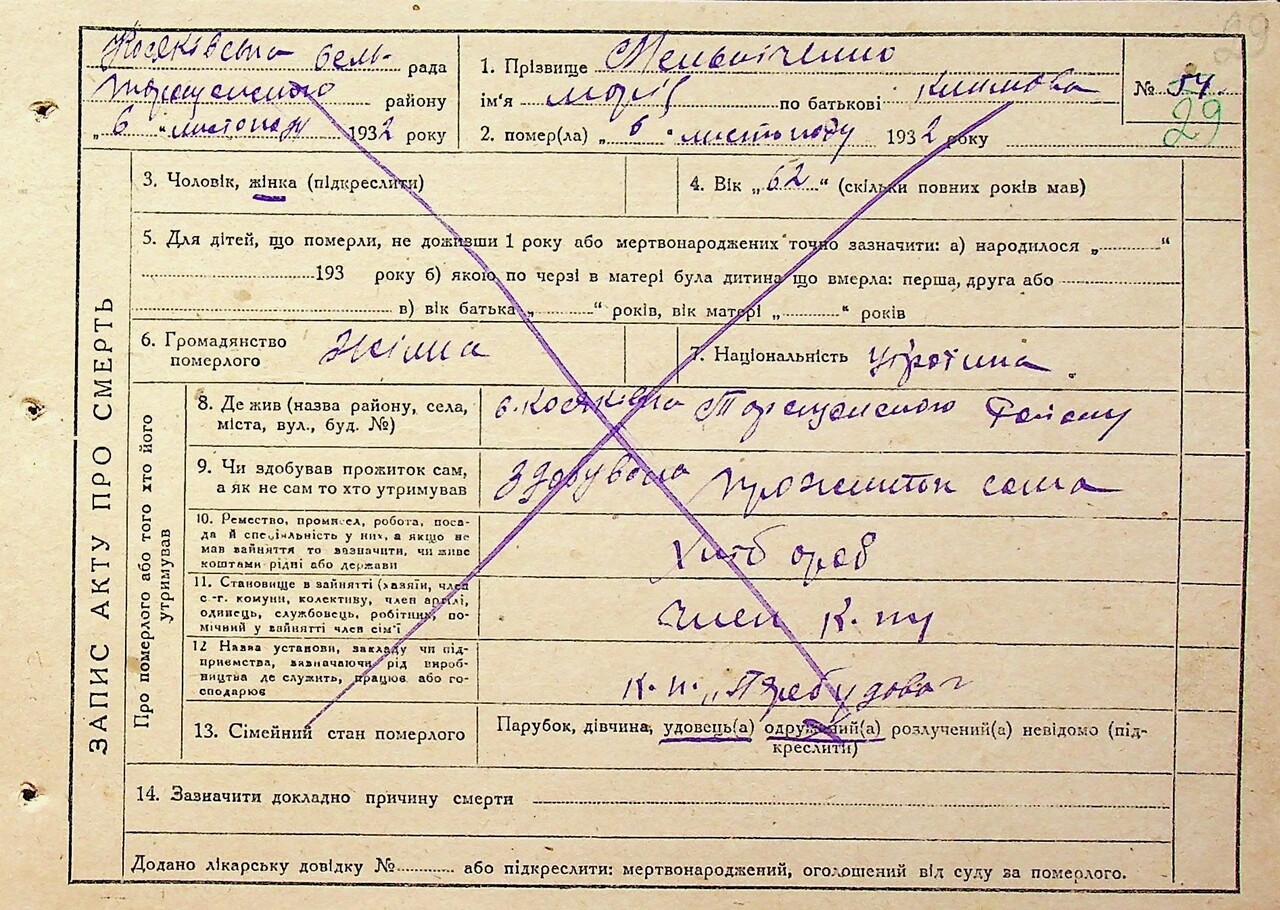 29
Косяківська сель- рада
Таращанського району
„6“ листопада 1932 року
1. Прізвище Мельніченко
ім'я Марія по батькові Климова
№ 54
29
2. помер(ла) „6“ листопаду 1932 року
3. Чоловік, жінка (підкреслити)
4. Вік „62“ (скільки повних років мав)
5. Для дітей, що померли, не доживши 1 року або мертвонароджених точно зазначити: а) народилося „ “
193 року б) якою по черзі в матері була дитина що вмерла: перша, друга або
в) вік батька „ “ років, вік матері „ “ років
ЗАПИС АКТУ ПРО СМЕРТЬ
6. Громадянство
померлого
7. Національність
Про померлого або того хто його
утримував
8. Де жив (назва району, села,
міста, вул., буд. №)
с. Косяківка Таращанського Району
9. Чи здобував прожиток сам,
а як не сам то хто утримував
Здобувала прожиток сама
10. Ремество, промисел, робота, поса-
да й спеціяльність у них, а якщо не
мав зайняття то зазначити, чи живе
коштами рідні або держави
Хлібороб
11. Становище в зайнятті (хазяїн, член
с.-г. комуни, колективу, член артілі,
одинець, службовець, робітник, по-
мічний у зайнятті член сім'ї
Член К-пу
12 Назва установи, закладу чи під-
приємства, зазначаючи рід вироб-
ництва де служить, працює або го-
сподарює
К. п. „Перебудова“
13. Сімейний стан померлого
Парубок, дівчина, удовець(а) одружений(а) розлучений(а) невідомо (під-
креслити)
14. Зазначити докладно причину смерти
Додано лікарську довідку № або підкреслити: мертвонароджений, оголошений від суду за померлого.